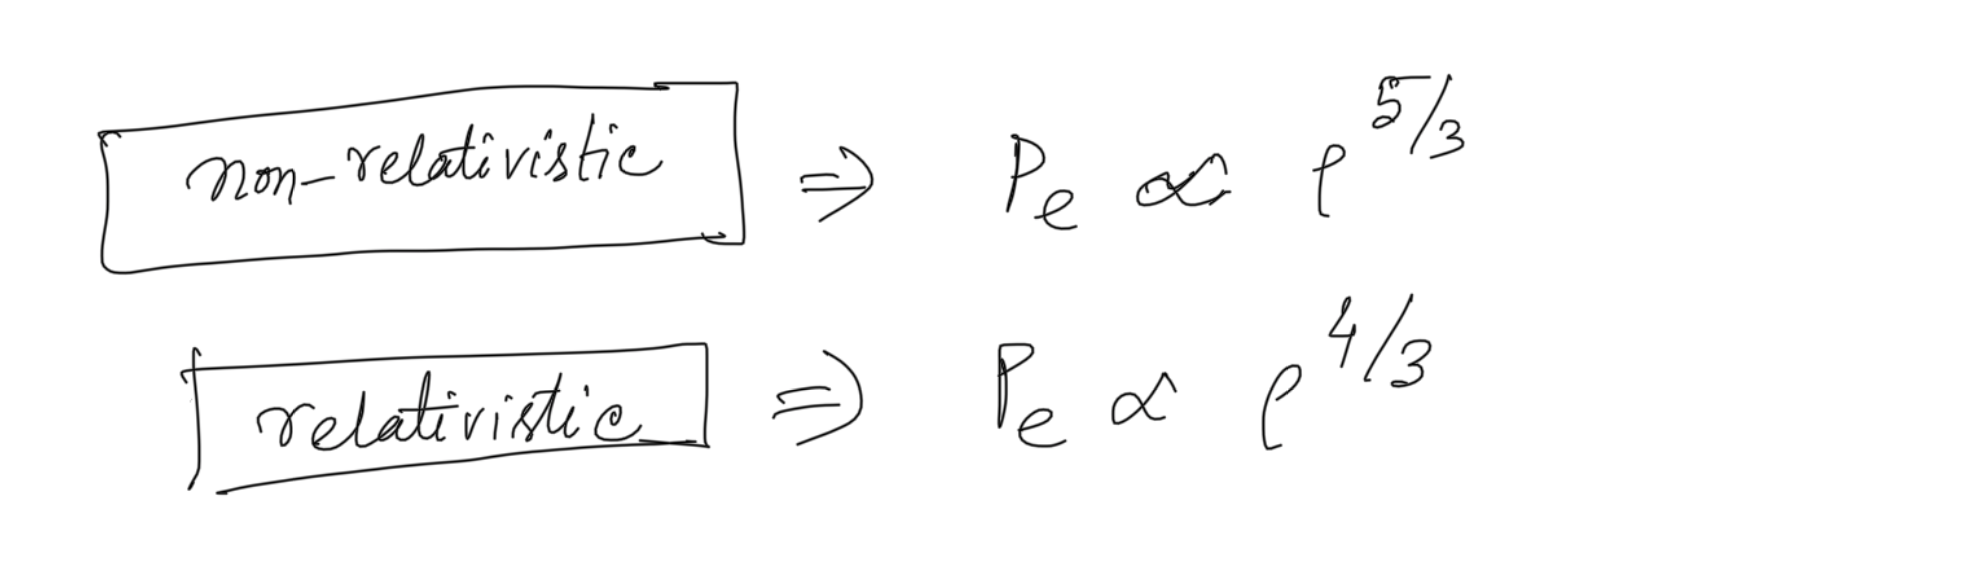 non-relativistic ⇒ Pe ∝ ρ^5/3
relativistic ⇒ Pe ∝ ρ^4/3